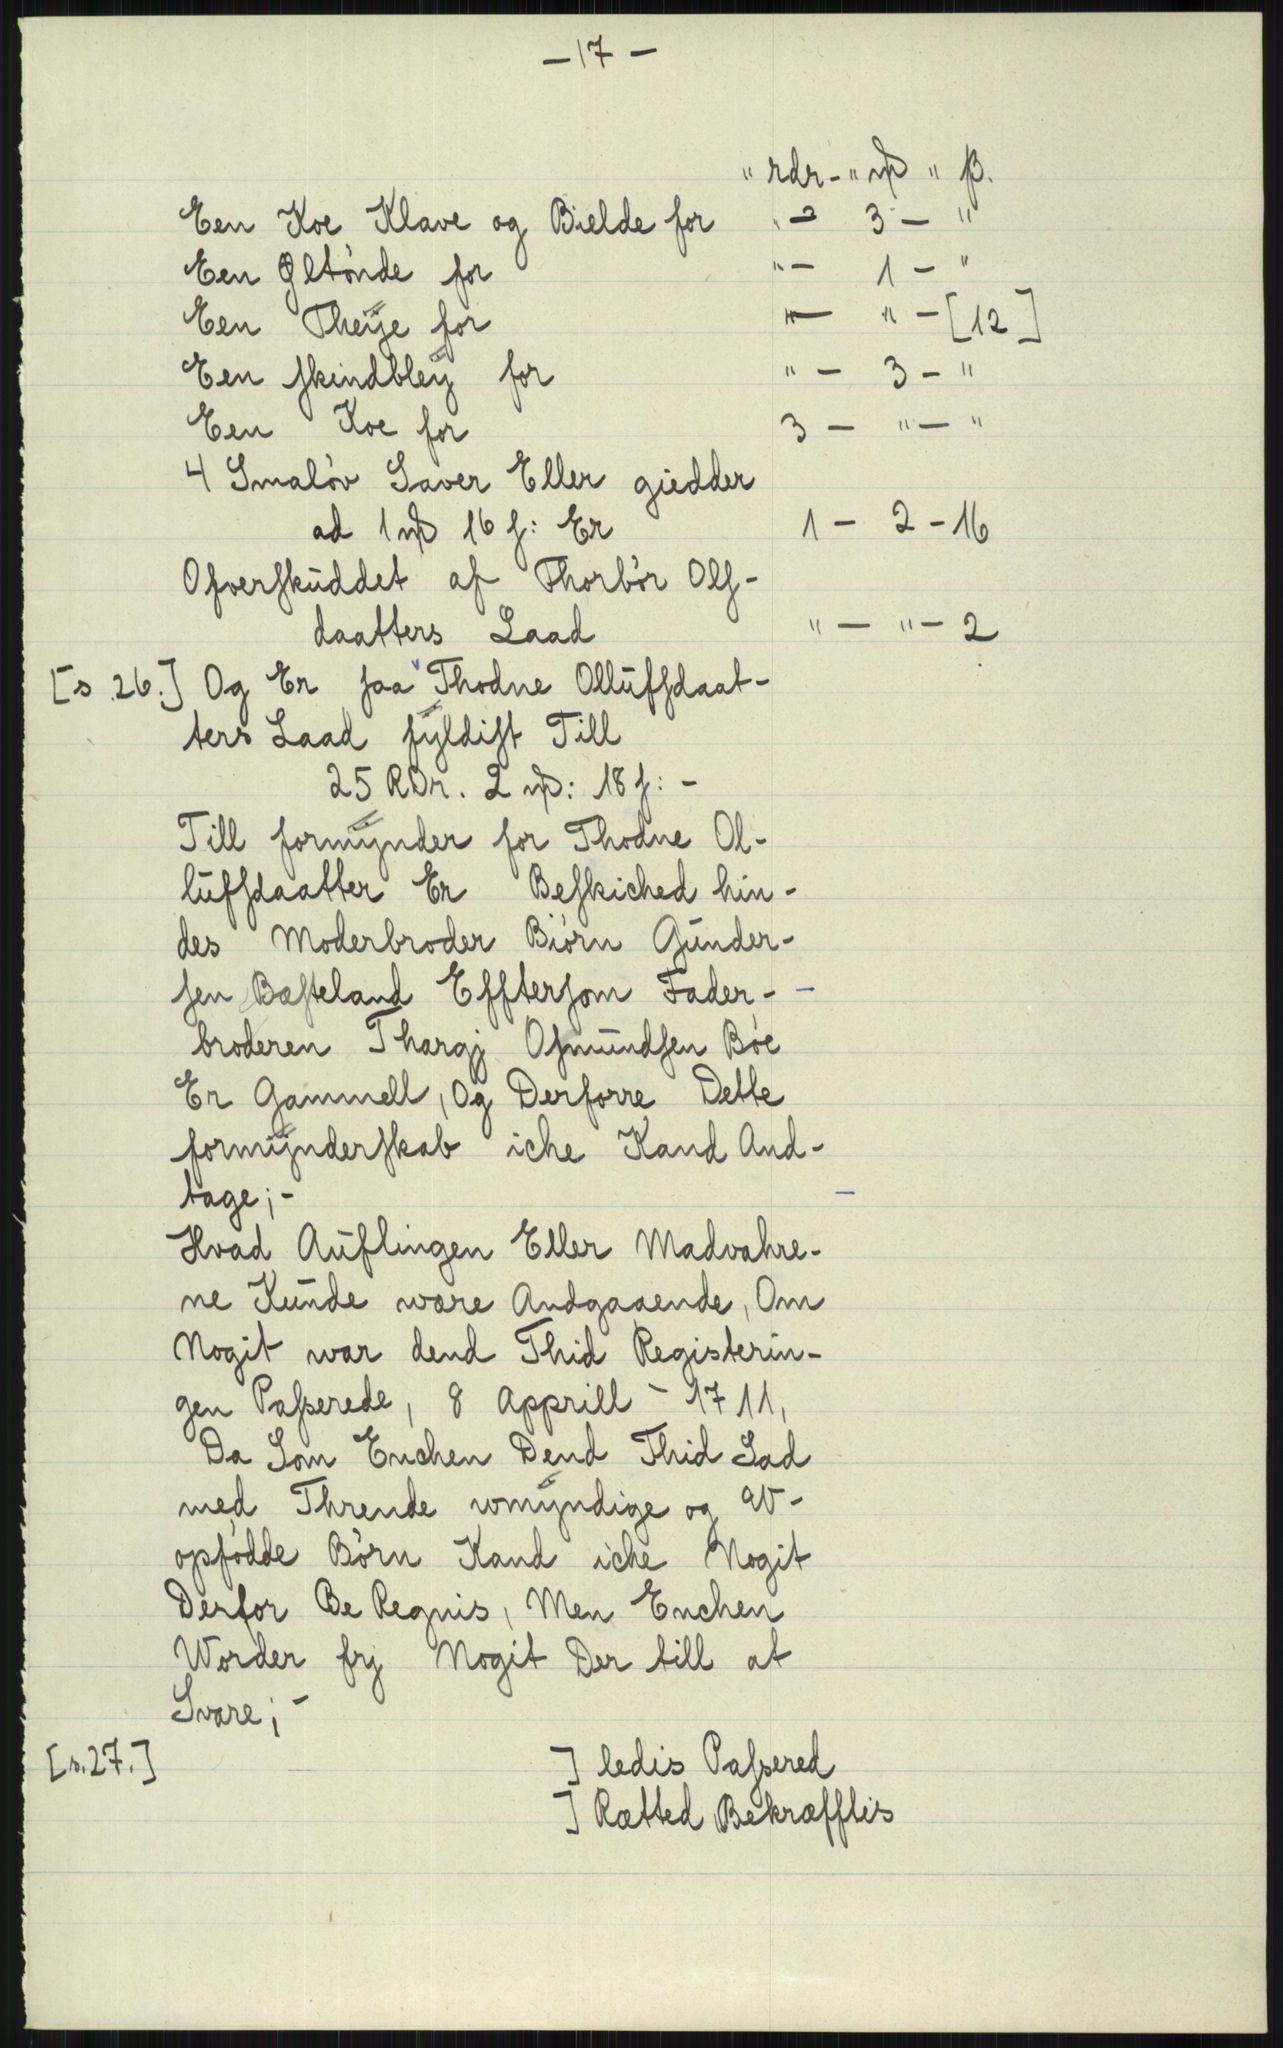 — 17 —
" rdr - " mk " ß.
Een Koe Klave og Bielde for " - 3 - "
Een Øltönde for " - 1 - "
Een Theÿe for " - " - [12]
Een skindbleÿ for " - 3 - "
Een Koe for 3 - " - "
4 Smalöv Saver Eller giedder
ad 1 mk 16 s: Er 1 - 2 - 16
Ofverskuddet af Thorbör Ols-
daatters Laad " - " - 2
[s. 26.] Og Er saa Thodne Ollufsdaat-
ters Laad fÿldist Till
25 RDr. 2 mk: 18 s: -
Till formÿnder for Thodne Ol-
lufsdaatter Er Beskiched hin-
des Moderbroder Biörn Gunder-
sen Bœsteland Efftersom Fader-
broderen Thargj Osmundsen Böe
Er Gammell, Og Derforre Dette
formÿnderskab iche Kand And-
tage; -
Hvad Auflingen Eller Madvahre-
ne Kunde wœre Andgaaende, Om
Nogit war dend Thid Registerin-
gen Passerede, 8 Apprill - 1711,
Da Som Enchen Dend Thid Sad
med Thrende wmÿndige og W-
opfödde Börn Kand iche Nogit
Derfor Be Regnis, Men Enchen
Worder frj Nogit Der till at
Svare; -
[s. 27.] ] ledis Passered
] Rœtted Bekrœfftis